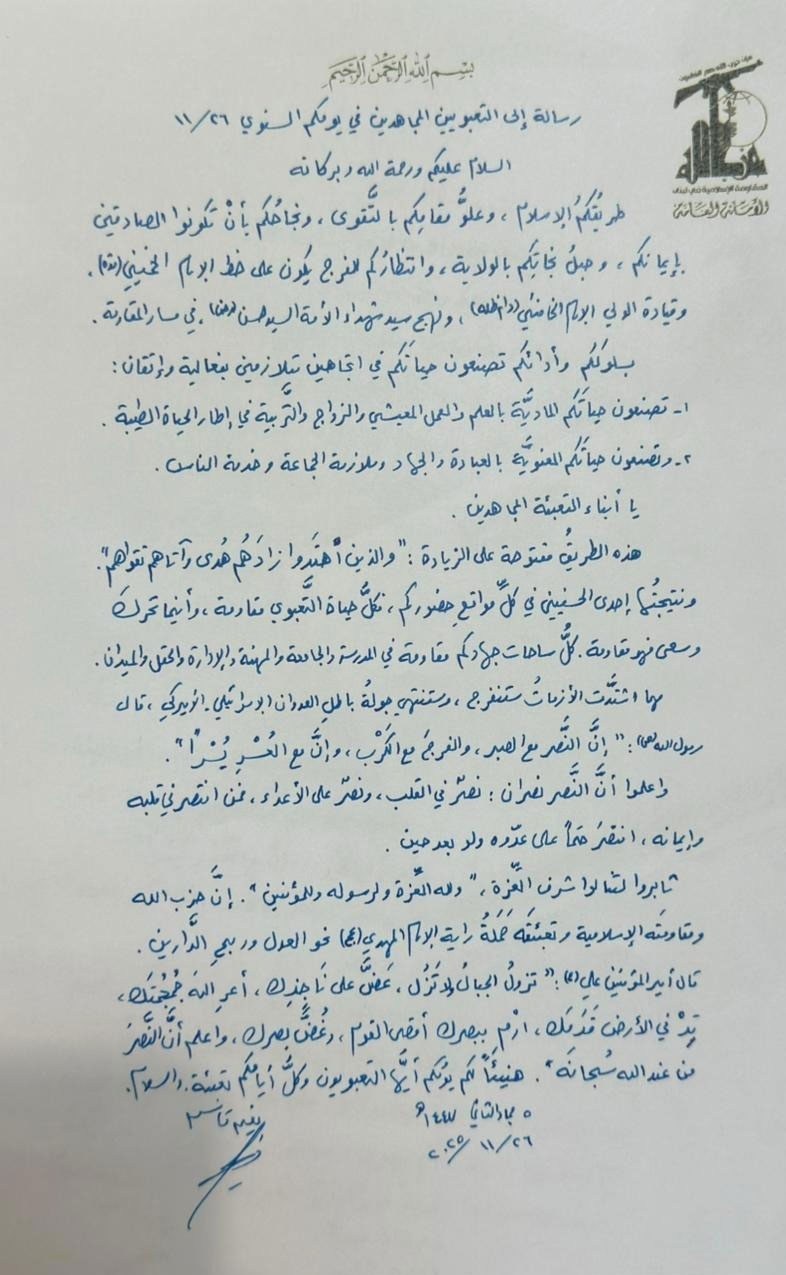 بسم الله الرحمن الرحيم
حزب الله
المقاومة الإسلامية في لبنان
الأمانة العامة
رسالة إلى التعبويين المجاهدين في يومكم السنوي ١١/٢٦
السلام عليكم ورحمة الله وبركاته
طريقُكُم الإسلام، وعلوُّ مقامِكم بالتَّقوى، ونجاحُكم بأنْ تكونوا الصادقين
بإيمانكم، وحبلُ نجاتِكم بالولاية، وانتظارُكم للفرج يكون على خط الإمام الخميني (قده).
وقيادة الولي الإمام الخامنئي (دام ظله)، ونهج سيد شهداء الأمة السيد حسن (رض)، في مسار المقاومة.
بسلوككم وأدائكم تصنعون حياتَكم في اتجاهين متلازمين بفعالية وإتقان:
١- تصنعون حياتَكم الماديَّة بالعلم والعمل المعيشي والزواج والتَّربية في إطار الحياة الطيبة.
٢- وتصنعون حياتَكم المعنويَّة بالعبادة والجهاد وملازمة الجماعة وخدمة الناس.
يا أبناء التعبئة المجاهدين.
هذه الطريقُ مفتوحة على الزيادة: "والذين اهتَدَوا زادَهُم هُدى وآتاهم تقواهم".
ونتيجتُها إحدى الحسنيين في كلِّ مواقعِ حضوركم، فكلُّ حياة التَّعبوي مقاومة، وأينما تحرك
وسعى فهو مقاومة. كلُّ ساحات جهادكم مقاومة في المدرسة والجامعة والمهنة والإدارة والحقل والميدان.
مهما اشتدَّت الأزماتُ ستنفرج، وستنتهي جولةُ باطلِ العدوان الإسرائيلي-الأميركي، قال
رسول الله (ص): "إنَّ النَّصر مع الصبر، والفرجَ مع الكَرْب، وإنَّ مع العُسْرِ يُسْرًا".
واعلموا أنَّ النَّصر نصران: نصرٌ في القلب، ونصرٌ على الأعداء، فمن انتصر في قلبه
وإيمانه، انتصرَ حتماً على عدّوه ولو بعد حين.
ثابروا لتنالوا شرف العِّزة، "ولله العِّزة ولرسوله وللمؤمنين". إنَّ حزب الله
ومقاومتَه الإسلامية وتعبئتَه حَمَلةُ راية الإمام المهدي (عج) نحو العدل وربحِ الدَّارين.
قال أمير المؤمنين علي (ع): "تزولُ الجبالُ ولا تَزُل، عَضَّ على نَاجِذِك، أعرِ اللهَ جُمجُمتَك،
تِدْ في الأرض قَدَمَك، ارْمِ ببصرك أقصى القوم، وغُضَّ بصرك، واعلم أنَّ النَّصرَ
من عند الله سُبحانَه". هنيئاً لكم يومُكم أيَّها التعبويون وكلُّ أيامكم تعبئة. والسلام.
٥ جمادى الثاني ١٤٤٧هـ
نعيم قاسم
٢٠٢٥/١١/٢٦